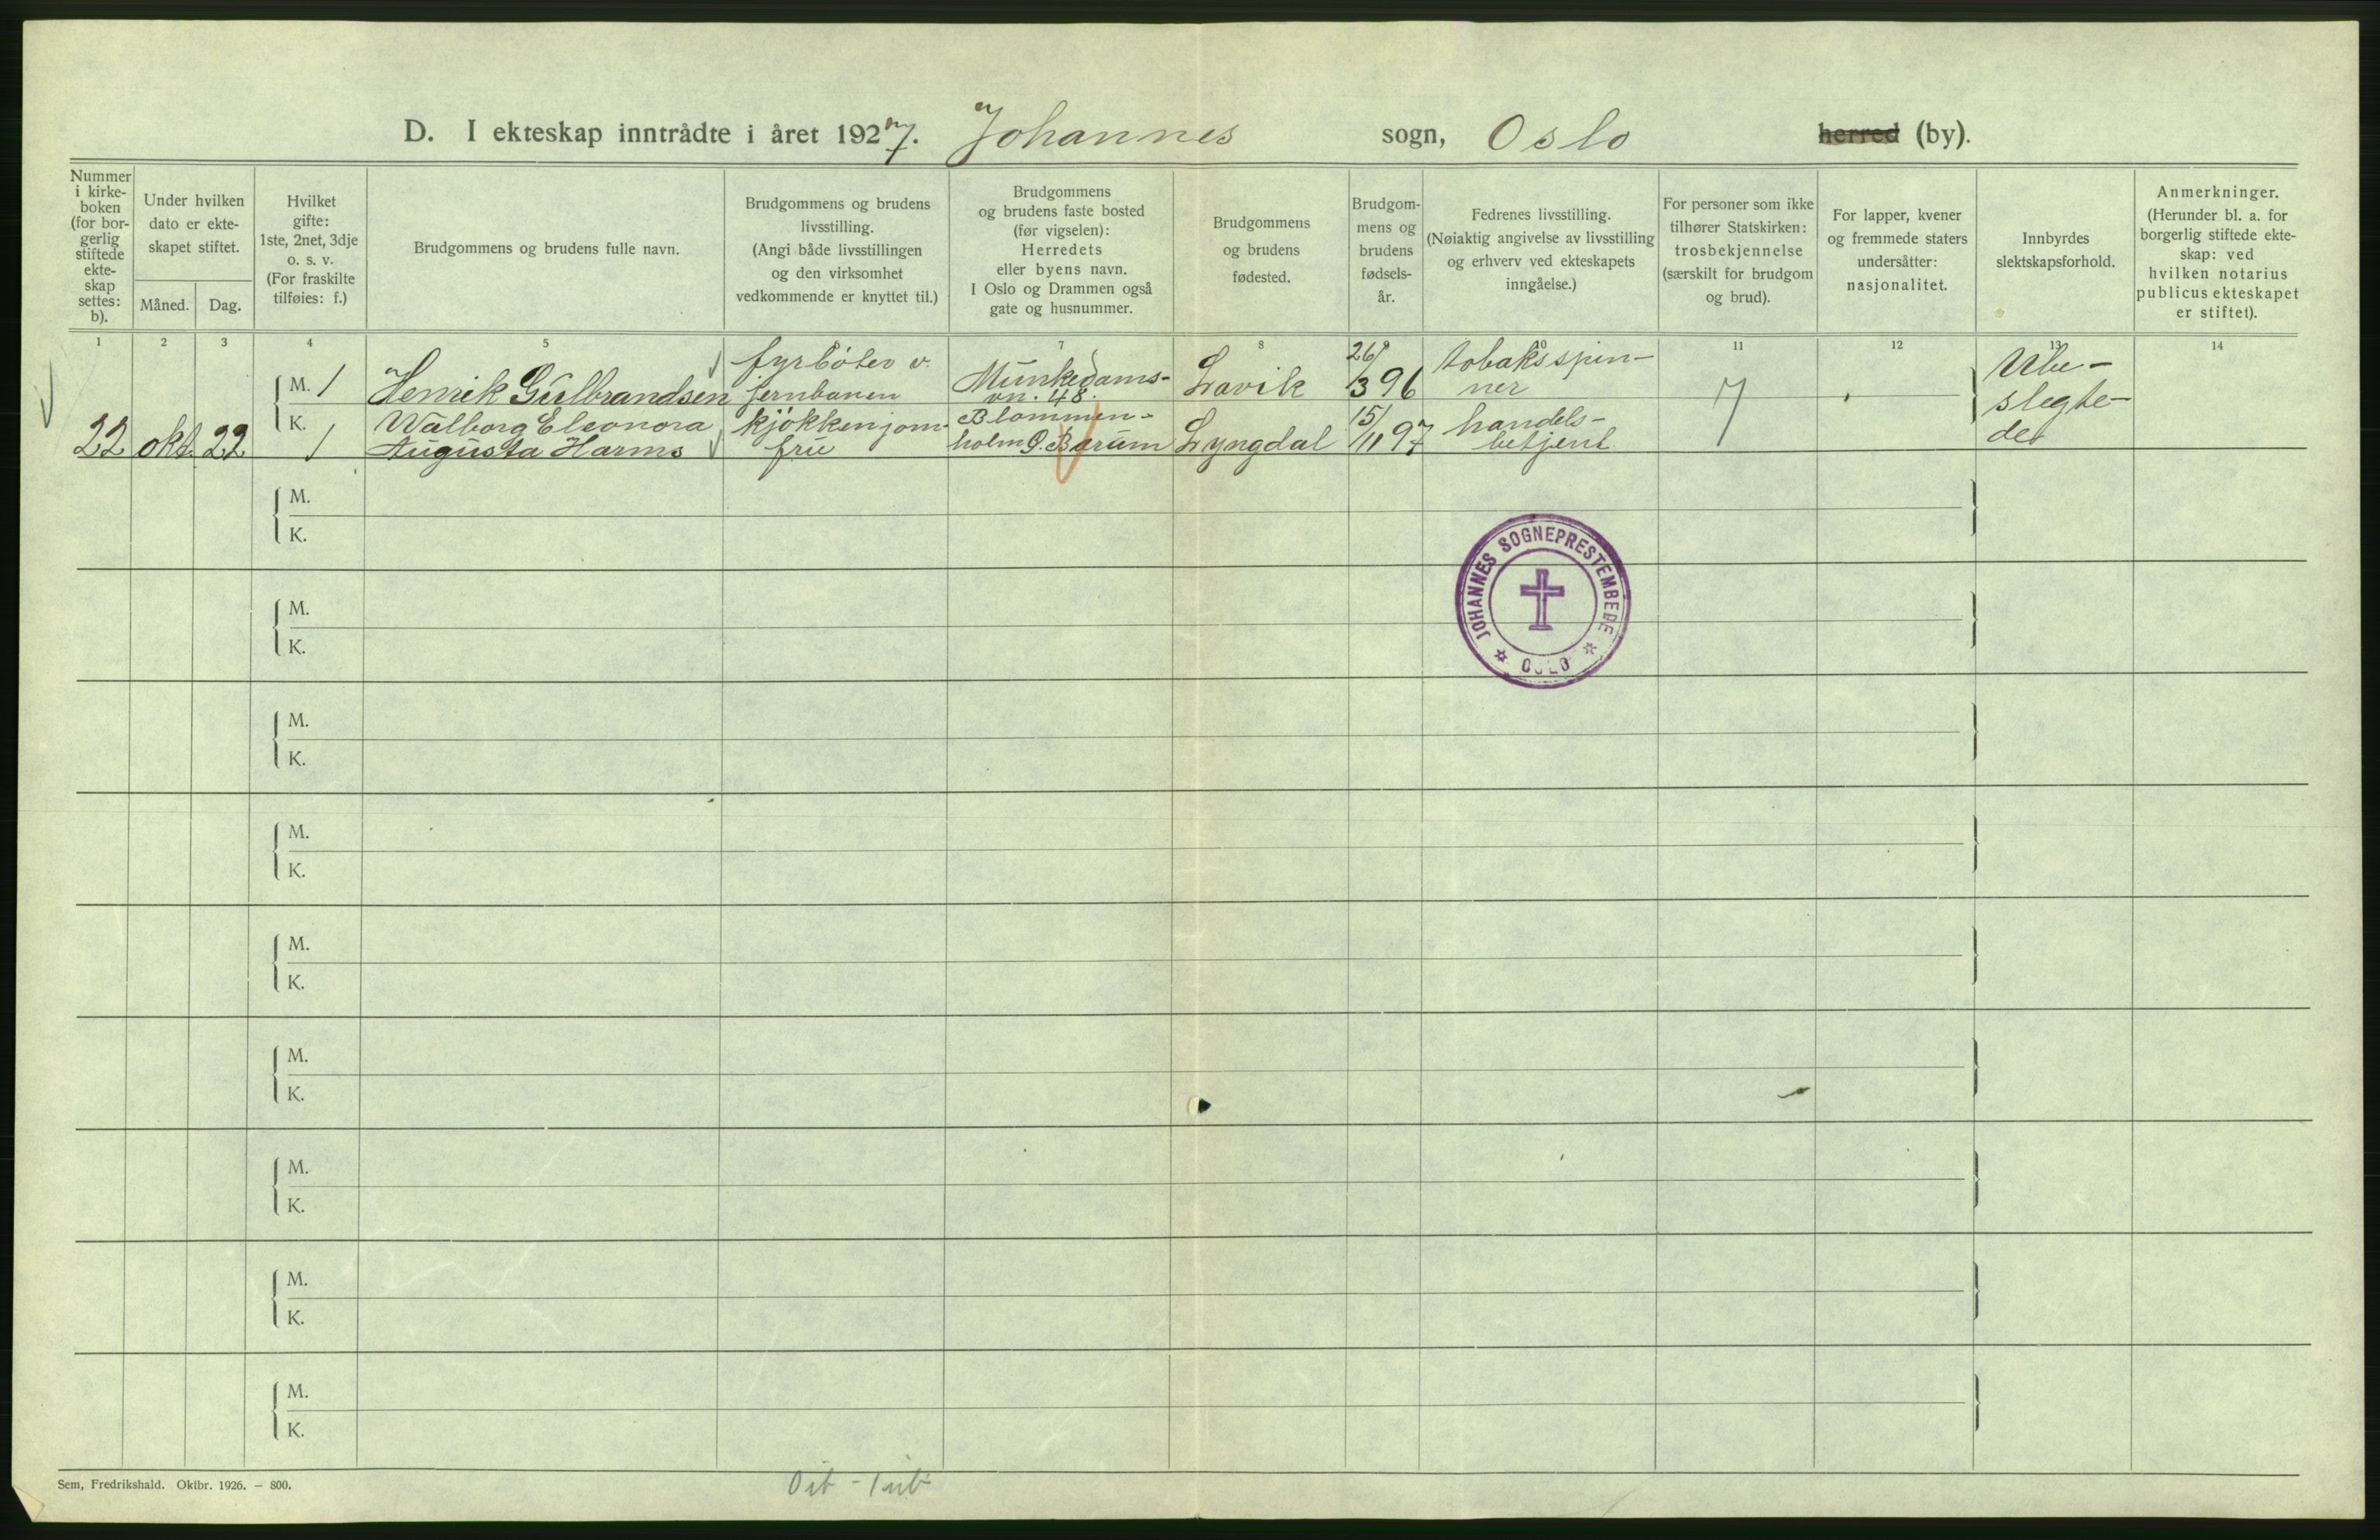 D. I ekteskap inntrådte i året 1927. Johannes sogn, Oslo herred (by).
Nummer
i kirke-
boken
(for bor-
gerlig
stiftede
ekte-
skap
settes:
b).
Under hvilken
dato er ekte-
skapet stiftet.
Måned.
Dag.
Hvilket
gifte:
1ste, 2net, 3dje
o. s. v.
(For fraskilte
tilføies: f.)
Brudgommens og brudens fulle navn.
Brudgommens og brudens
livsstilling.
(Angi både livsstillingen
og den virksomhet
vedkommende er knyttet til.)
Brudgommens
og brudens faste bosted
(før vigselen):
Herredets
eller byens navn.
I Oslo og Drammen også
gate og husnummer.
Brudgommens
og brudens
fødested.
Brudgom-
mens og
brudens
fødsels-
år.
Fedrenes livsstilling.
(Nøiaktig angivelse av livsstilling
og erhverv ved ekteskapets
inngåelse.)
For personer som ikke
tilhører Statskirken:
trosbekjennelse
(særskilt for brudgom
og brud).
For lapper, kvener
og fremmede staters
undersåtter:
nasjonalitet.
Innbyrdes
slektskapsforhold.
Anmerkninger.
(Herunder bl. a. for
borgerlig stiftede ekte-
skap: ved
hvilken notarius
publicus ekteskapet
er stiftet).
1 2 3 4 5 7 8 9 10 11 12 13 14
22 okt. 22
M. 1
Henrik Gulbrandsen
fyrböter v.
jernbanen
Munkedams-
vn. 48.
Lavik
26/3 96
tobaksspin-
ner
Ube-
slegte-
det
K. 1
Walborg Eleonora
Augusta Harms
kjökkenjom-
fru
Blommen-
holm Ø. Bærum
Lyngdal
15/11 97
handels-
betjent
M.
K.
M.
K.
M.
K.
M.
K.
M.
K.
M.
K.
M.
K.
M.
K.
M.
K.
JOHANNES SOGNEPRESTEMBEDE
OSLO
Sem, Fredrikshald. Oktbr. 1926. – 800.